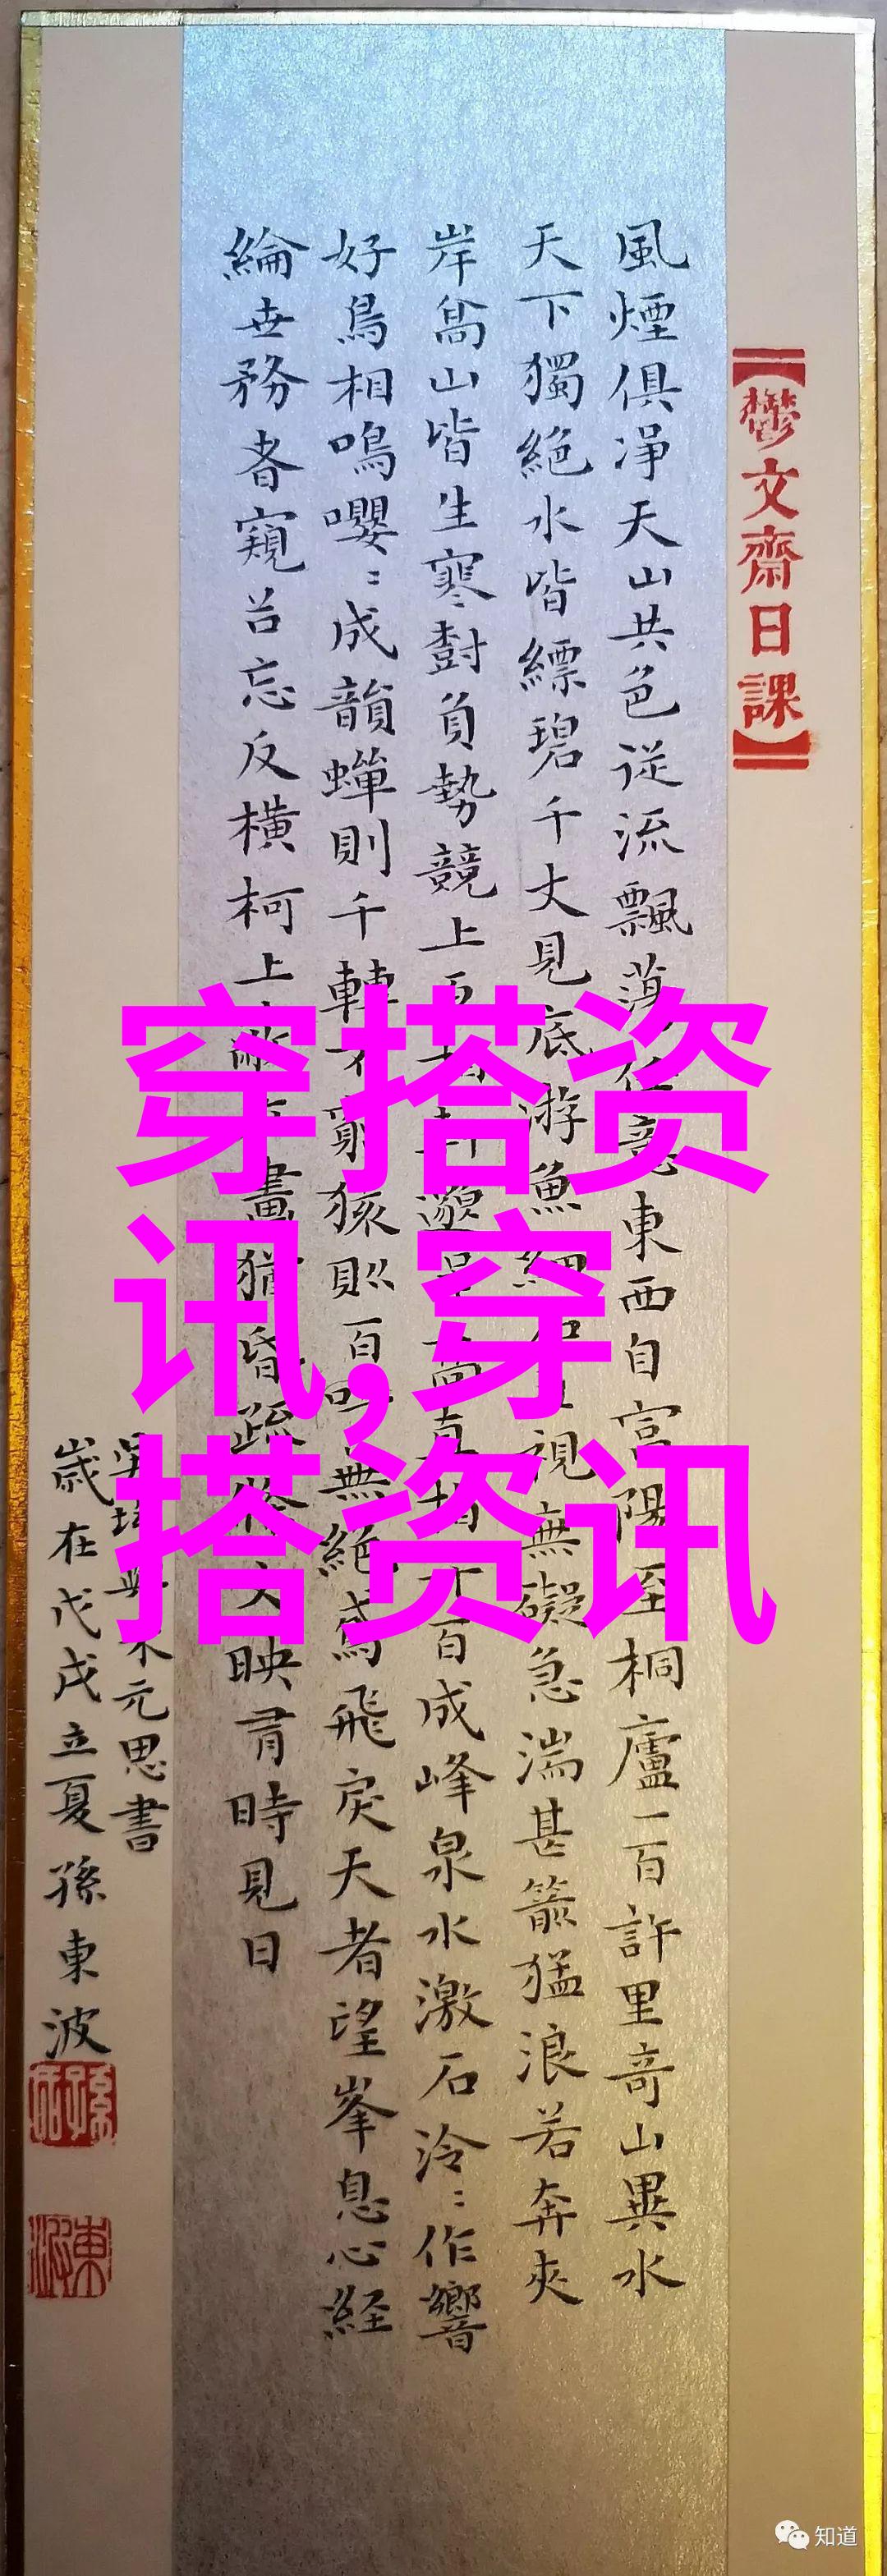 鬱文齋日課
風煙俱淨天山共色從流飄蕩任意東西自富陽至桐廬一百許里奇山異水
天下獨絕水皆縹碧千丈見底游魚細視無礙急湍甚箭猛浪若奔夾
岸高山皆生寒樹負勢競上百成峰泉水激石泠〻作響
好鳥相鳴嚶〻成韻蟬則千轉不窮猿則百無絕鳶飛戾天者望峯息心経
綸世務者窺谷忘反橫柯上晝猶昏疏映有時見日
元思書
歲在戊戌立夏孫東波
穿搭资
讯,穿
搭资讯
知道